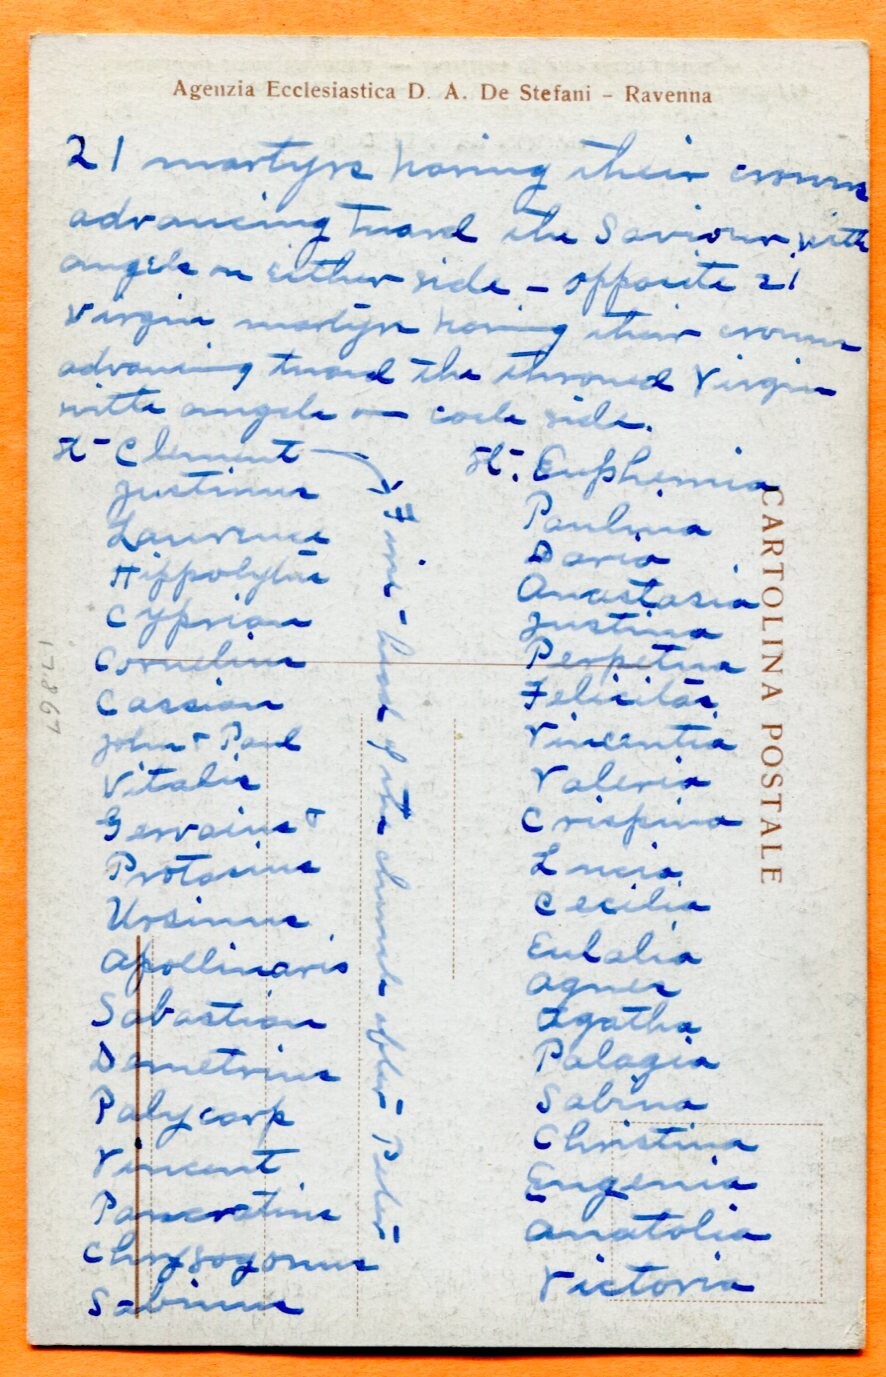 Agenzia Ecclesiastica D. A. De Stefani - Ravenna
21 martyrs having their crowns
advancing toward the Saviour with
angels on either side - opposite 21
Virgin martyrs having their crowns
advancing toward the throned Virgin
with angels on each side.
St - Clement
Justinus
Laurence
Hippolytus
Cyprian
Cornelius
Cassian
John & Paul
Vitalis
Gervasius &
Protasius
Ursinus
Apollinaris
Sabastian
Demetrius
Polycarp
Vincent
Pancratius
Chrysogonus
Sabinus
head of the church after Peter
St. Euphemia
Paulina
Daria
Anastasia
Justina
Perpetua
Felicitas
Vincentia
Valeria
Crispina
Lucia
Cecilia
Eulalia
Agnes
Agatha
Palagia
Sabina
Christina
Eugenia
Anatolia
Victoria
CARTOLINA POSTALE
17867